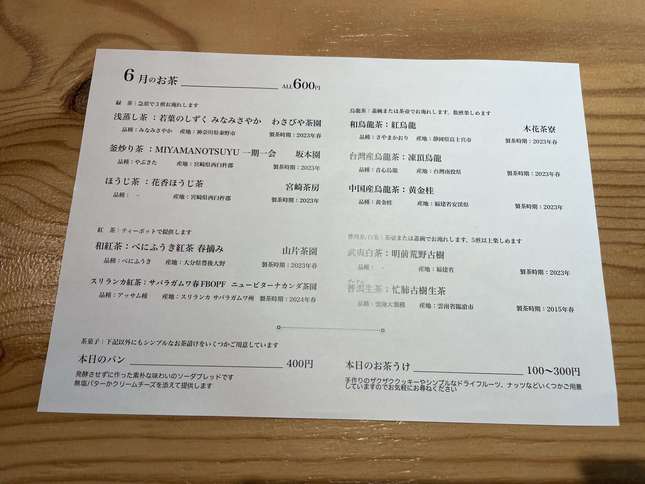 6月のお茶 ALL600円
緑 茶:急須で3煎お淹れします
浅蒸し茶:若葉のしずく みなみさやか わさびや茶園
品種:みなみさやか 産地:神奈川県秦野市 製茶時期:2023年春
釜炒り茶:MIYAMANOTSUYU 一期一会 坂本園
品種:やぶきた 産地:宮崎県西臼杵郡 製茶時期:2023年春
ほうじ茶:花香ほうじ茶 宮崎茶房
品種: - 産地:宮崎県西臼杵郡 製茶時期:2023年
紅 茶:ティーポットで提供します
和紅茶:べにふうき紅茶 春摘み 山片茶園
品種:べにふうき 産地:大分県豊後大野 製茶時期:2023年春
スリランカ紅茶:サバラガムワ春FBOPF ニュービターナカンダ茶園
品種:アッサム種 産地:スリランカ サバラガムワ州 製茶時期:2024年春
烏龍茶:蓋碗または茶壺でお淹れします、数煎楽しめます
和烏龍茶:紅烏龍 木花茶寮
品種:さやまかおり 産地:静岡県富士宮市 製茶時期:2023年春
台湾産烏龍茶:凍頂烏龍
品種:青心烏龍 産地:台湾南投県 製茶時期:2023年春
中国産烏龍茶:黄金桂
品種:黄金桂 産地:福建省安渓県 製茶時期:2023年
普洱茶/白茶:茶壺または蓋碗でお淹れします、5煎以上楽しめます
武夷白茶:明前荒野古樹
品種: - 産地:福建省 製茶時期:2023年
普洱生茶:忙肺古樹生茶
品種:雲南大葉種 産地:雲南省臨滄市 製茶時期:2015年春
茶菓子:下記以外にもシンプルなお茶請けをいくつかご用意しています
本日のパン 400円
発酵させずに作った素朴な味わいのソーダブレッドです
無塩バターかクリームチーズを添えて提供します
本日のお茶うけ 100〜300円
手作りのザクザククッキーやシンプルなドライフルーツ、ナッツなどいくつかご用意
していますのでお気軽にお尋ねください